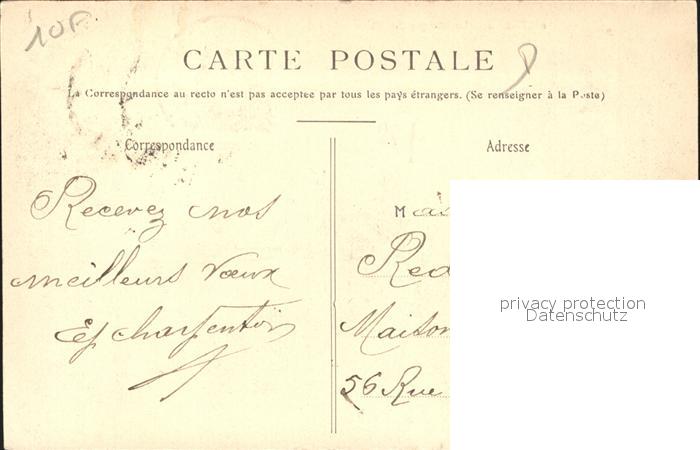 10F
CARTE POSTALE
La Correspondance au recto n'est pas acceptee par tous les pays étrangers. (Se renseigner à la Poste)
Correspondance
Adresse
Recevez nos
meilleurs vœux
Charpentier
M
Red
Maison
56 Rue
privacy protection
Datenschutz